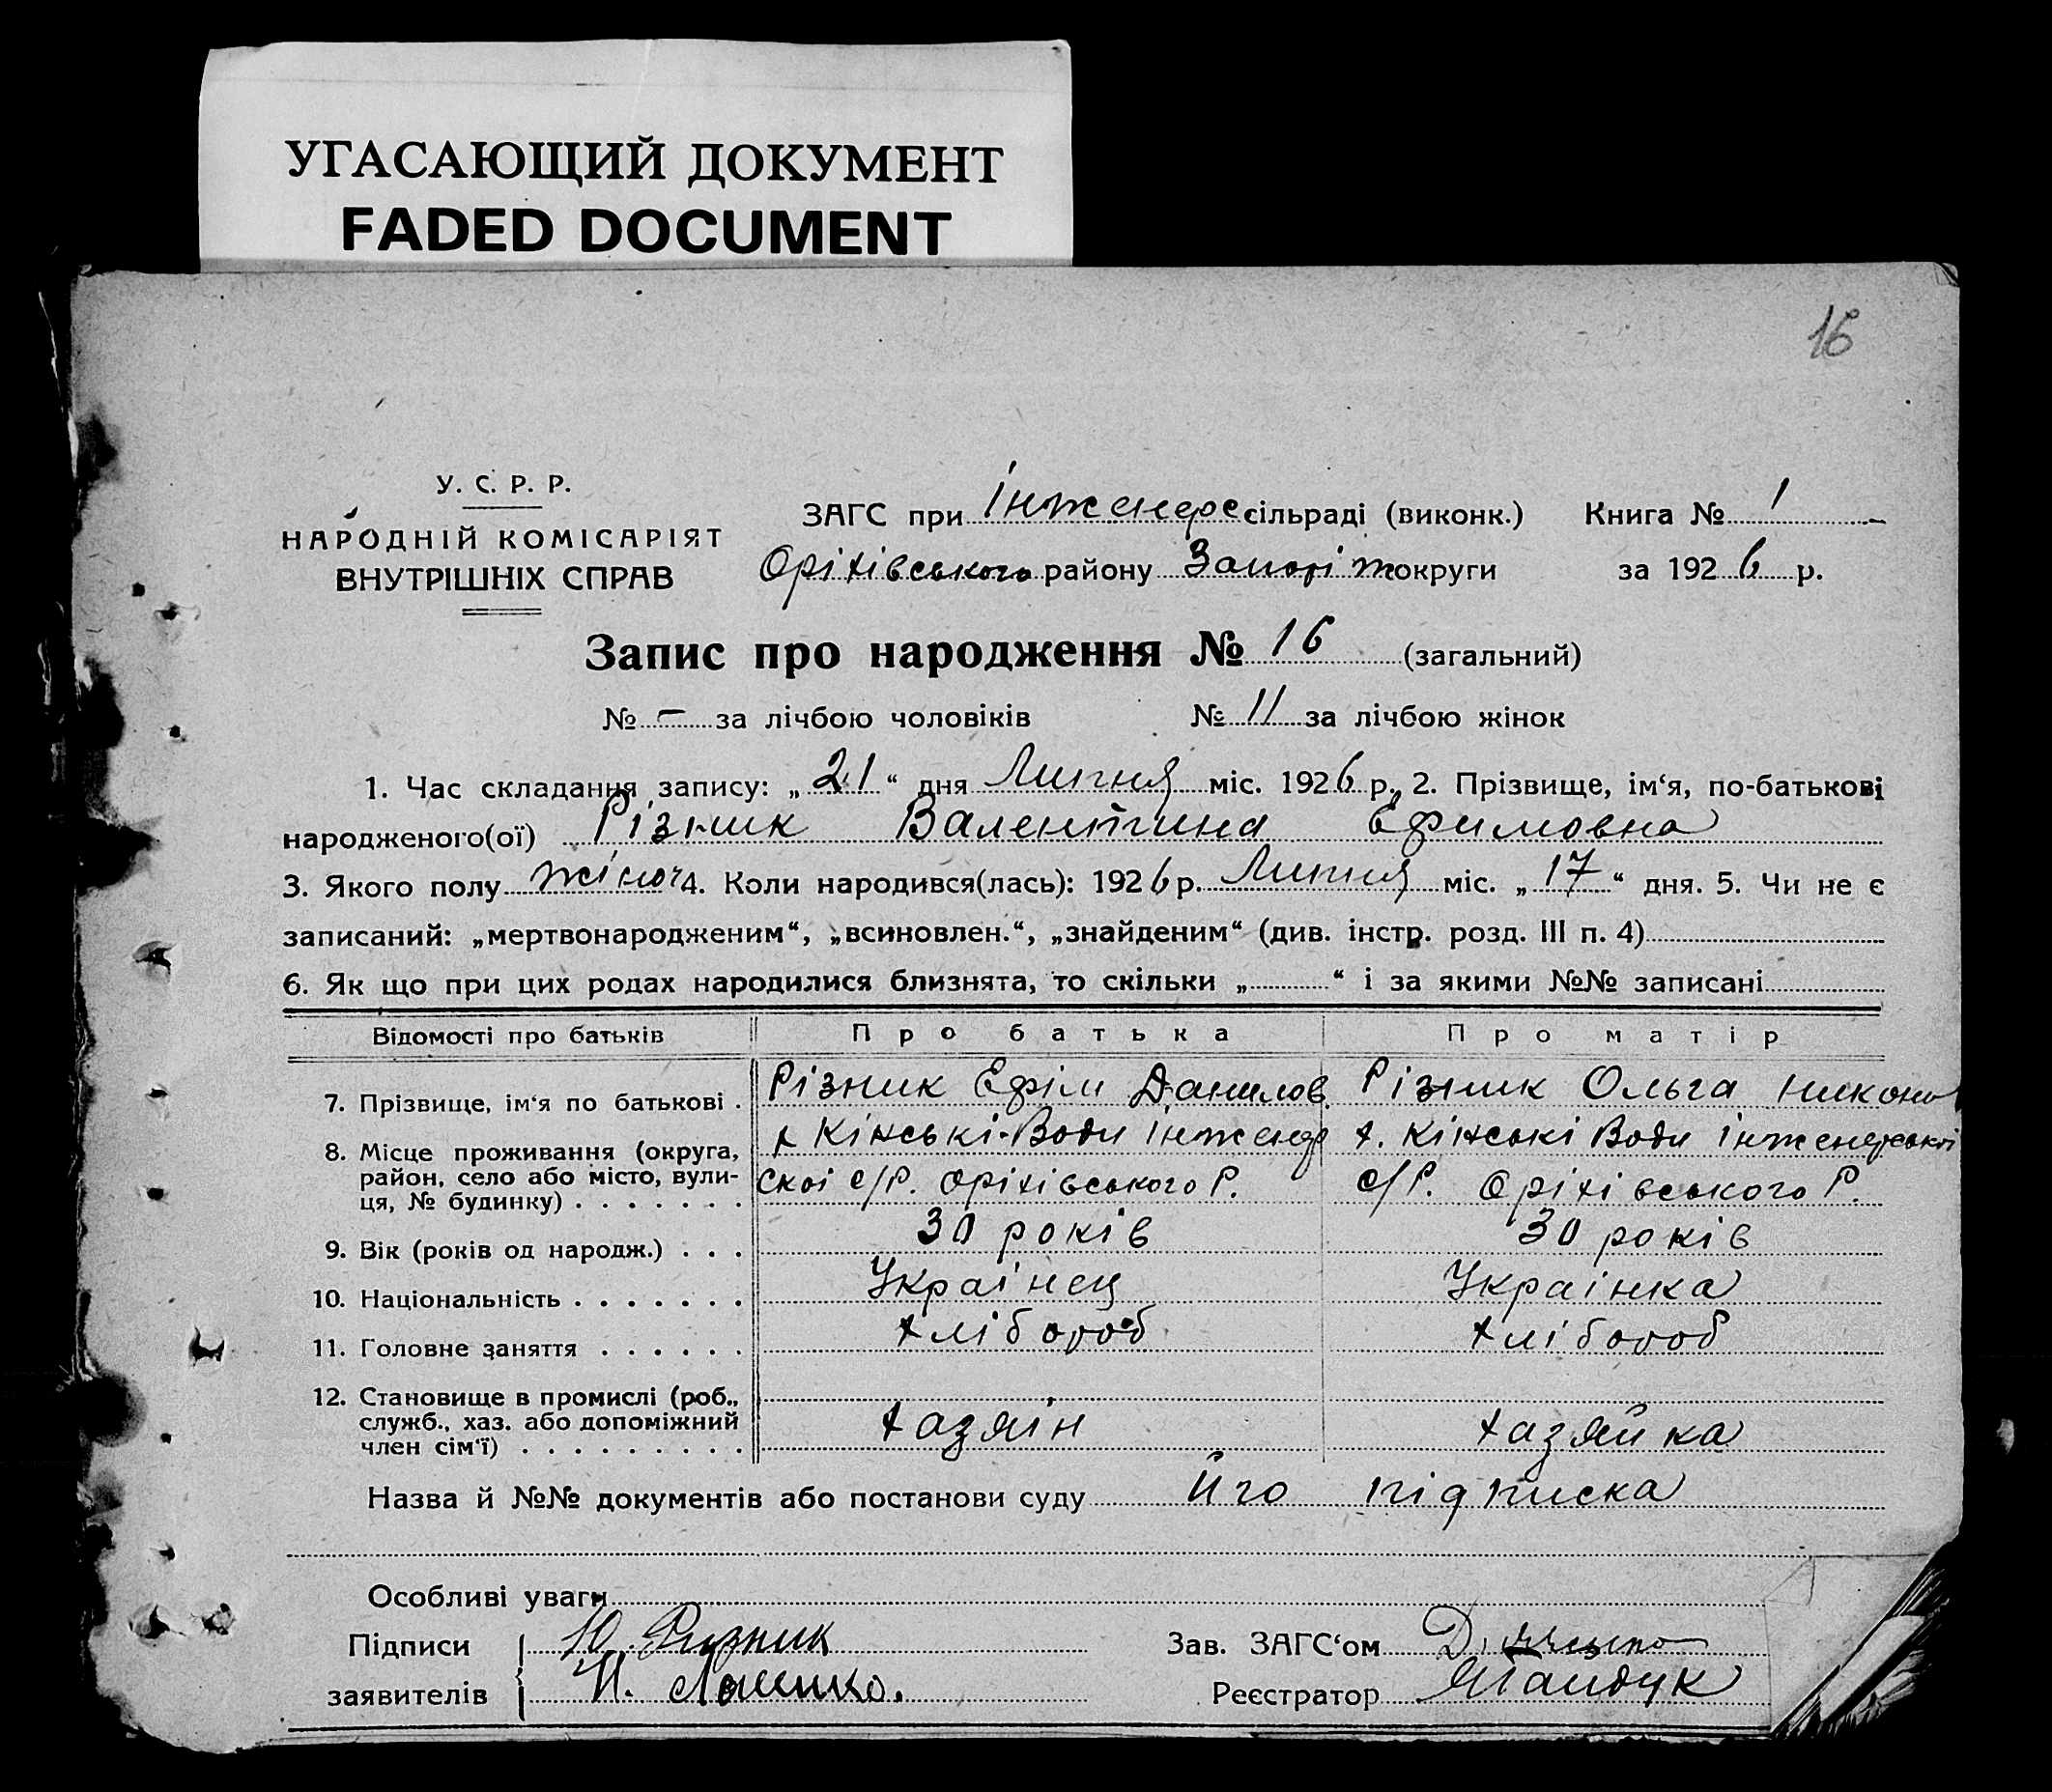 УГАСАЮЩИЙ ДОКУМЕНТ
FADED DOCUMENT
16
У. С. Р. Р.
НАРОДНІЙ КОМІСАРІЯТ
ВНУТРІШНІХ СПРАВ
ЗАГС при Інженерс сільраді (виконк.) Книга № 1
Оріхівського району Запоріж округи за 1926 р.
Запис про народження № 16 (загальний)
№ – за лічбою чоловіків № 11 за лічбою жінок
1. Час складання запису: „21“ дня Липня міс. 1926 р. 2. Прізвище, ім‘я, по-батькові
народженого(ої) Різник Валентина Ефимовна
3. Якого полу жіноч 4. Коли народився(лась): 1926 р. Липня міс. „17“ дня. 5. Чи не є
записаний: „мертвонародженим“, „всиновлен.“, „знайденим“ (див. інстр. розд. III п. 4)
6. Як що при цих родах народилися близнята, то скільки „ “ і за якими №№ записані
Відомості про батьків Про батька Про матір
7. Прізвище, ім‘я по батькові . Різник Ефім Данилов Різник Ольга Никон
8. Місце проживання (округа, х Кінські-Води Інженер х. Кінські Води Інженерської
район, село або місто, вули- скоі с/Р. Оріхівського Р. с/Р. Оріхівського Р.
ця, № будинку) . . . . . . .
9. Вік (років од народж.) . . . 30 років 30 років
10. Національність . . . . . . . Українец Українка
11. Головне заняття . . . . . . хлібороб хлібороб
12. Становище в промислі (роб.,
служб., хаз. або допоміжний хазяін хазяйка
член сім‘ї) . . . . . . . . .
Назва й №№ документів або постанови суду йго підписка
Особливі уваги
Підписи Ю. Ризник Зав. ЗАГС‘ом
заявителів Н. Реєстратор